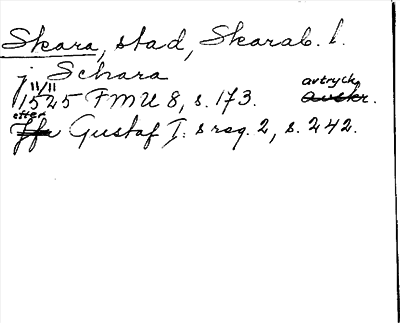 Skara, stad, Skarab. l.
j Schara
11/11 1525 FMU 8, s. 173. avtryck Avskr.
efter Jfr Gustaf I: s reg. 2, s. 242.